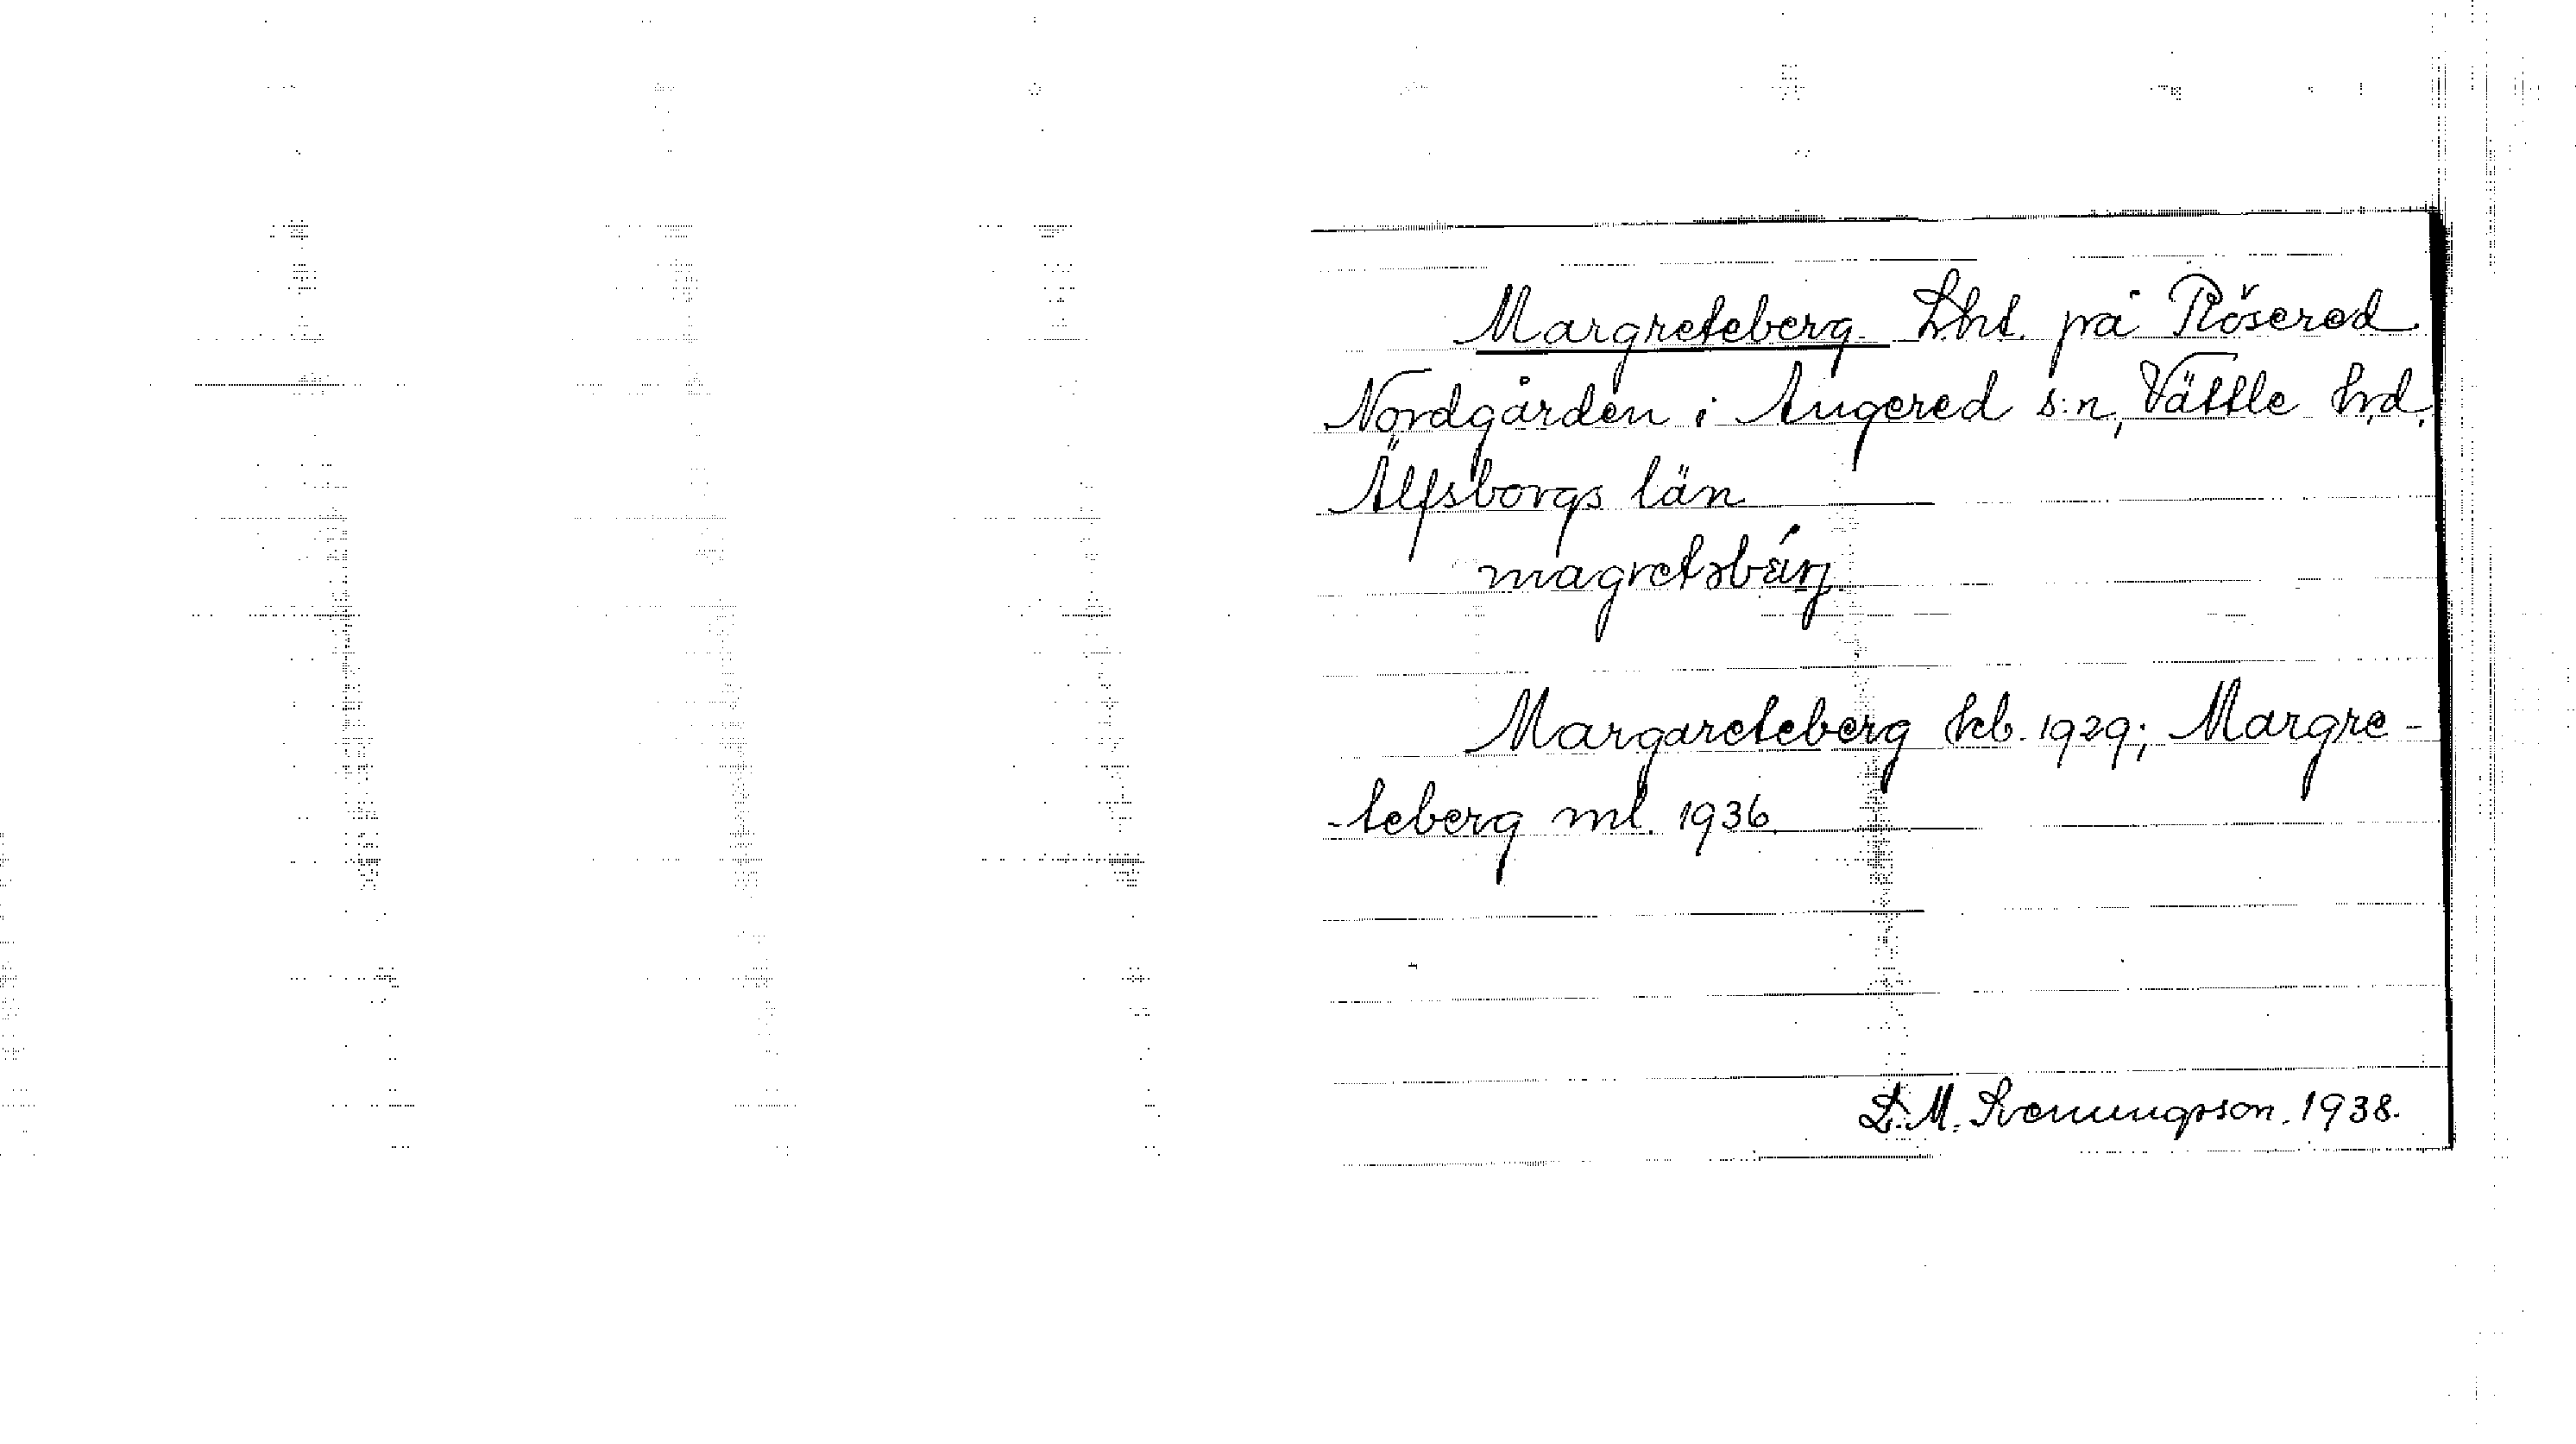 Margreteberg Lht. på Röserød
Nordgården i Angered s:n, Vättle hd,
Älfsborgs län
magretəbärj.
Margareteberg kb. 1929; Margre-
-teberg ml. 1936.
S. M. Svenungsson. 1938.